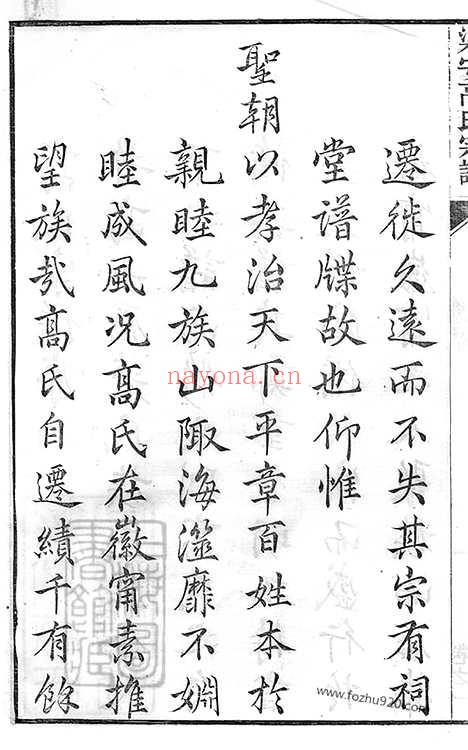 梁安高氏宗譜
遷徙久遠而不失其宗有祠
堂譜牒故也仰惟
聖朝以孝治天下平章百姓本於
親睦九族山陬海澨靡不婣
睦成風况高氏在徽甯素推
望族哉高氏自遷績千有餘
nayona.cn
www.fozhu920.com